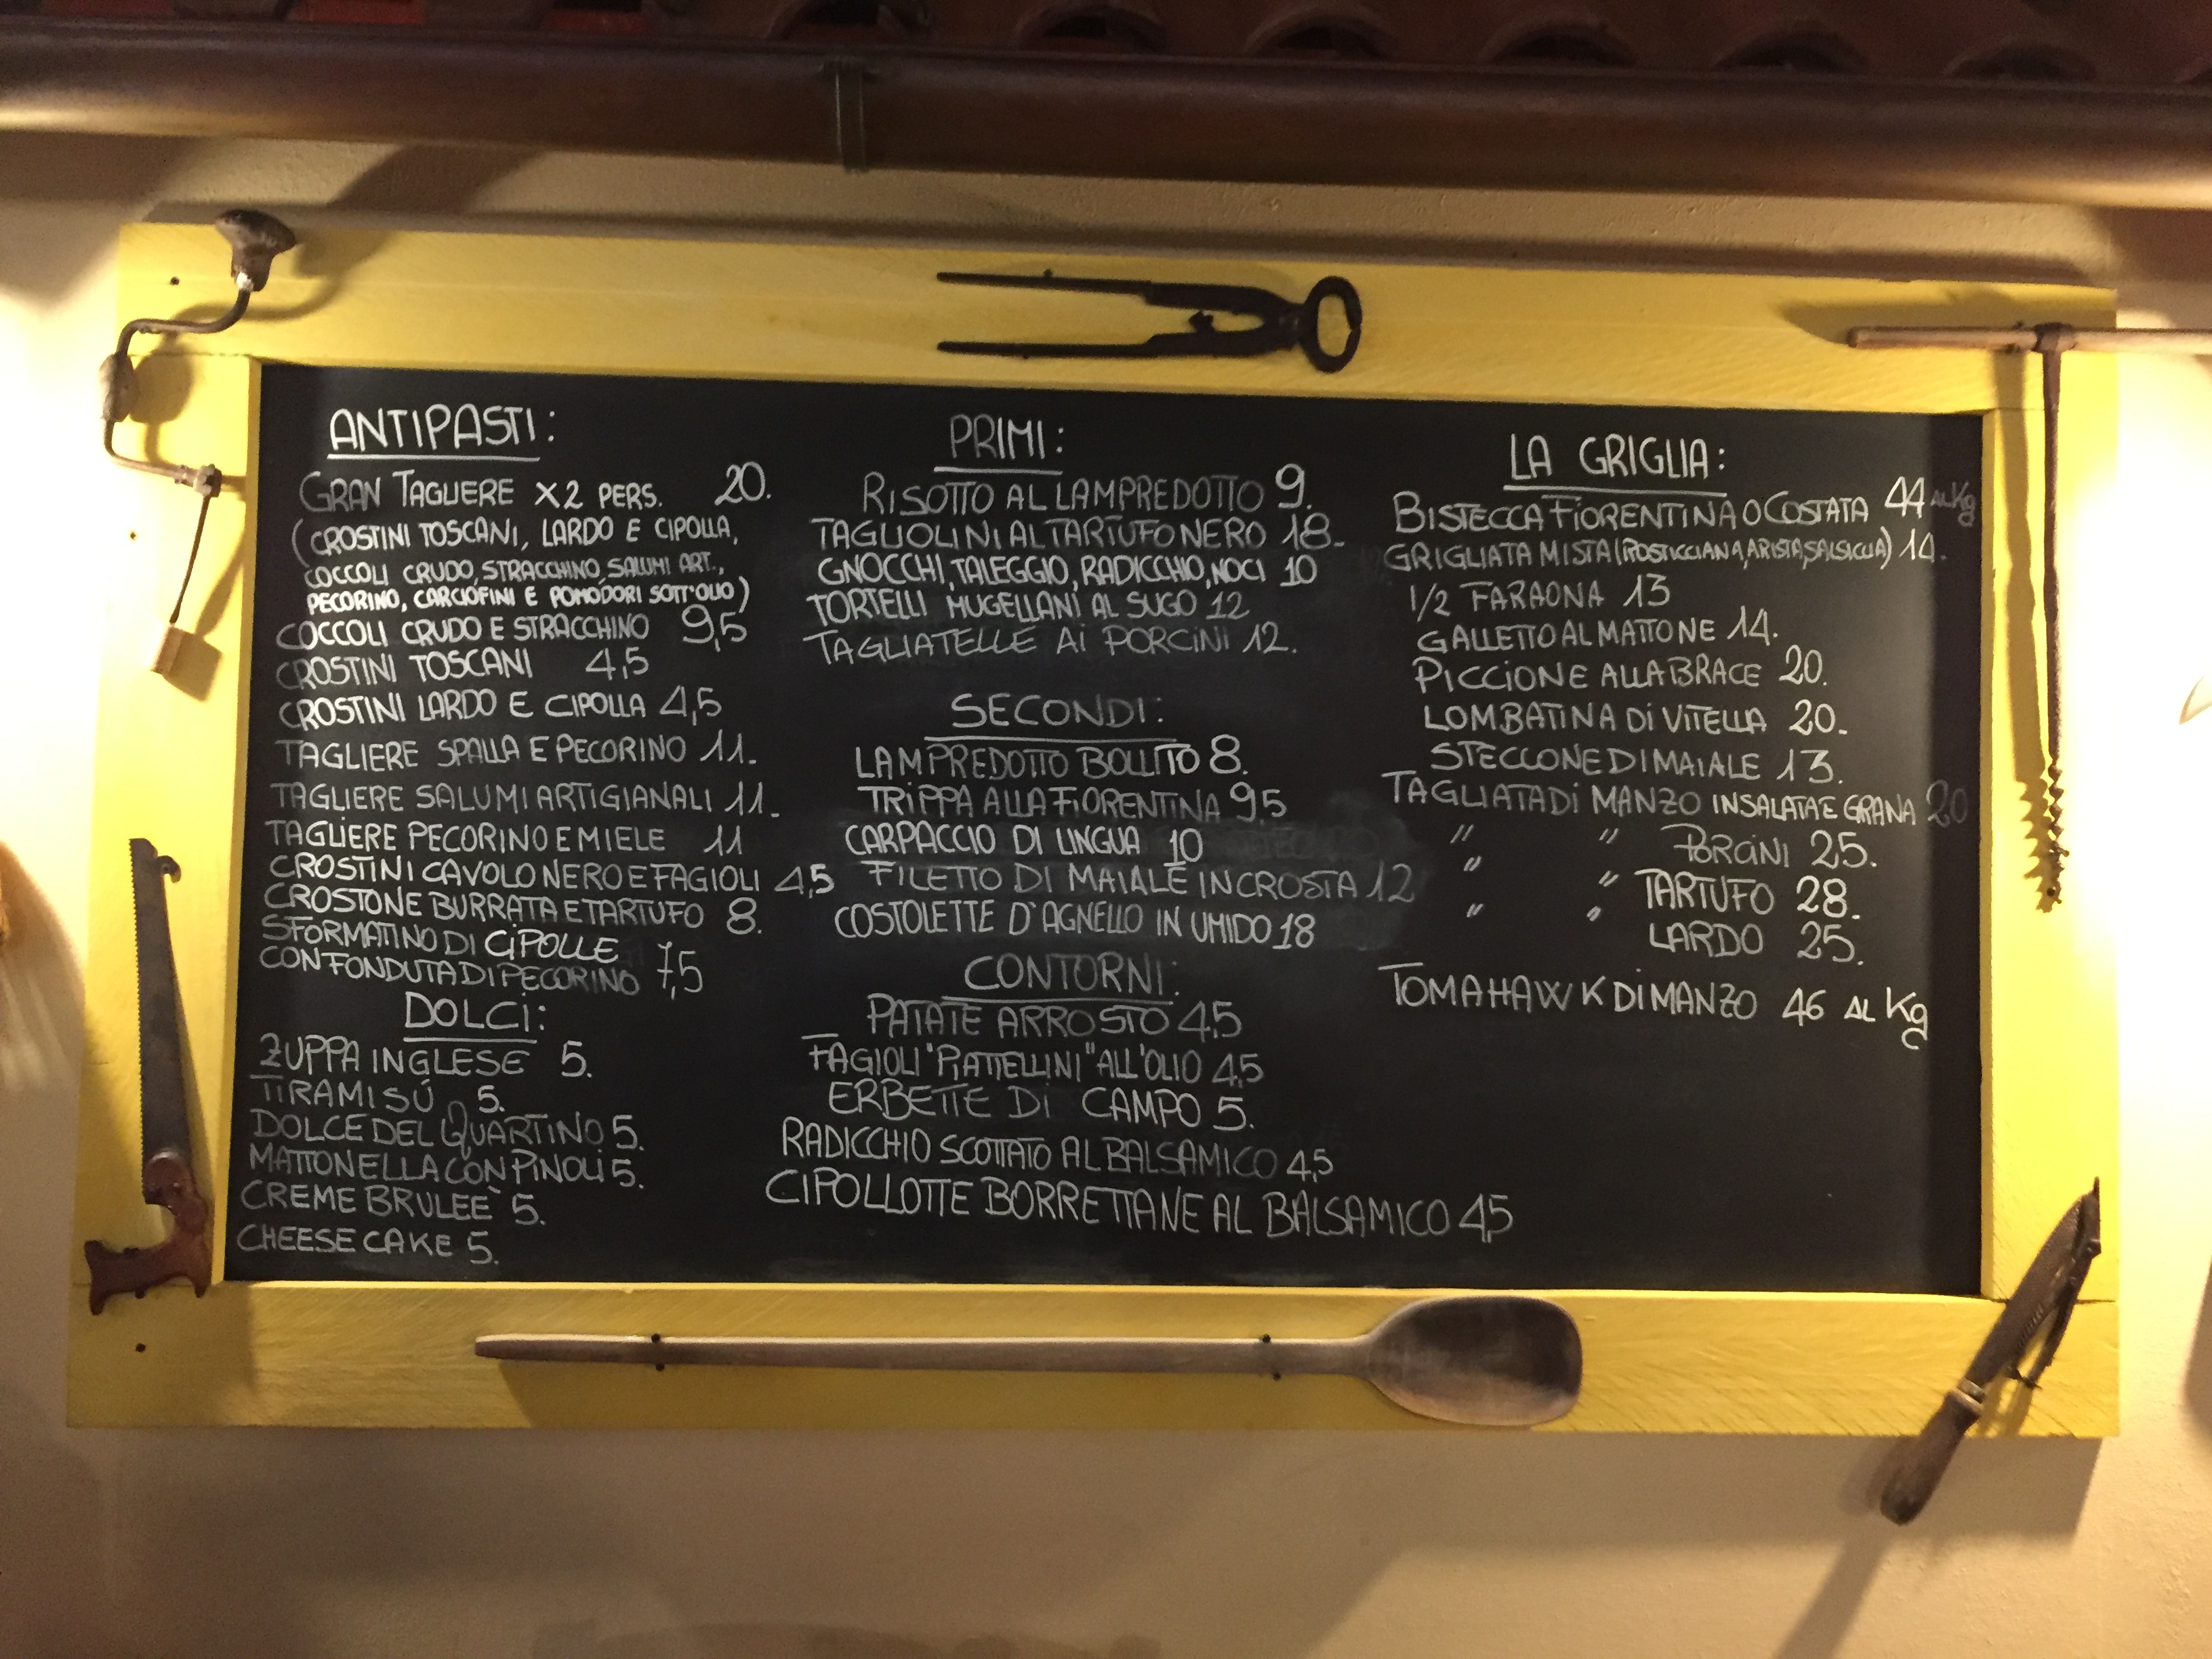 ANTIPASTI:
GRAN TAGLIERE X2 PERS. 20.
(CROSTINI TOSCANI, LARDO E CIPOLLA,
COCCOLI CRUDO, STRACCHINO, SALUMI ART.,
PECORINO, CARCIOFINI E POMODORI SOTT'OLIO)
COCCOLI CRUDO E STRACCHINO 9,5
CROSTINI TOSCANI 4,5
CROSTINI LARDO E CIPOLLA 4,5
TAGLIERE SPALLA E PECORINO 11.
TAGLIERE SALUMI ARTIGIANALI 11.
TAGLIERE PECORINO E MIELE 11
CROSTINI CAVOLO NERO E FAGIOLI 4,5
CROSTONE BURRATA E TARTUFO 8.
SFORMATINO DI CIPOLLE
CON FONDUTA DI PECORINO 7,5
DOLCI:
ZUPPA INGLESE 5.
TIRAMISÚ 5.
DOLCE DEL QUARTINO 5.
MATTONELLA CON PINOLI 5.
CREME BRULEÈ 5.
CHEESE CAKE 5.
PRIMI:
RISOTTO AL LAMPREDOTTO 9.
TAGLIOLINI AL TARTUFO NERO 18.
GNOCCHI, TALEGGIO, RADICCHIO, NOCI 10
TORTELLI MUGELLANI AL SUGO 12
TAGLIATELLE AI PORCINI 12.
SECONDI:
LAMPREDOTTO BOLLITO 8.
TRIPPA ALLA FIORENTINA 9,5
CARPACCIO DI LINGUA 10
FILETTO DI MAIALE IN CROSTA 12
COSTOLETTE D'AGNELLO IN UMIDO 18
CONTORNI:
PATATE ARROSTO 4,5
FAGIOLI "PIATTELLINI" ALL'OLIO 4,5
ERBETTE DI CAMPO 5.
RADICCHIO SCOTTATO AL BALSAMICO 4,5
CIPOLLOTTE BORRETTANE AL BALSAMICO 4,5
LA GRIGLIA:
BISTECCA FIORENTINA O COSTATA 44 AL Kg
GRIGLIATA MISTA (ROSTICCIANA, ARISTA, SALSICCIA) 14.
1/2 FARAONA 13
GALLETTO AL MATTONE 14.
PICCIONE ALLA BRACE 20.
LOMBATINA DI VITELLA 20.
STECCONE DI MAIALE 13.
TAGLIATA DI MANZO INSALATA E GRANA 20
" " PORCINI 25.
" " TARTUFO 28.
" " LARDO 25.
TOMAHAWK DI MANZO 46 AL Kg